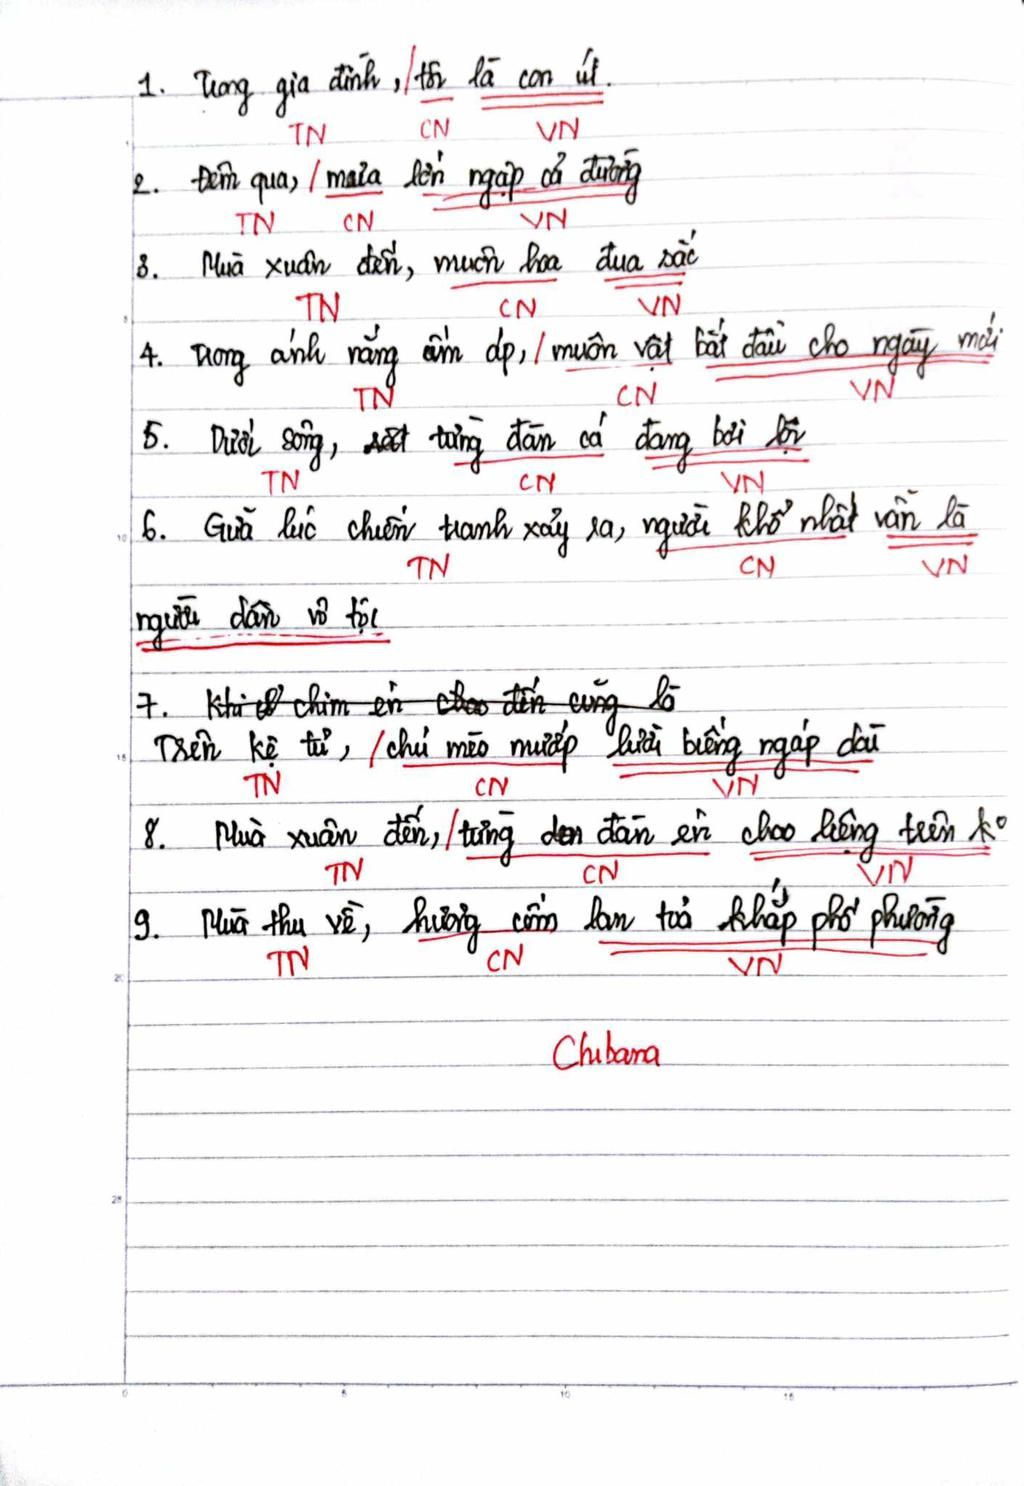 1. Trong gia đình, / tôi là con út.
TN CN VN
2. Đêm qua, / mưa lớn ngập cả đường
TN CN VN
3. Mùa xuân đến, muôn hoa đua sắc
TN CN VN
4. Trong ánh nắng ấm áp, / muôn vật bắt đầu cho ngày mới
TN CN VN
5. Dưới sông, từng đàn cá đang bơi lội
TN CN VN
6. Giữa lúc chiến tranh xảy ra, người khổ nhất vẫn là
TN CN VN
người dân vô tội
7. Khi chim én đến cũng là
Trên kệ tủ, / chú mèo mướp lười biếng ngáp dài
TN CN VN
8. Mùa xuân đến, / từng đàn én chao liệng trên ko
TN CN VN
9. Mùa thu về, hương cốm lan toả khắp phố phường
TN CN VN
Chibana
5
10
15
20
25
0 5 10 15